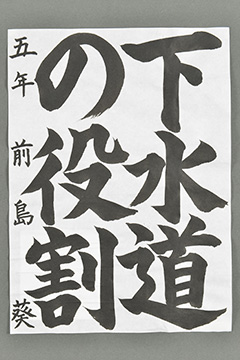 下水道
の役割
五年 前島 葵